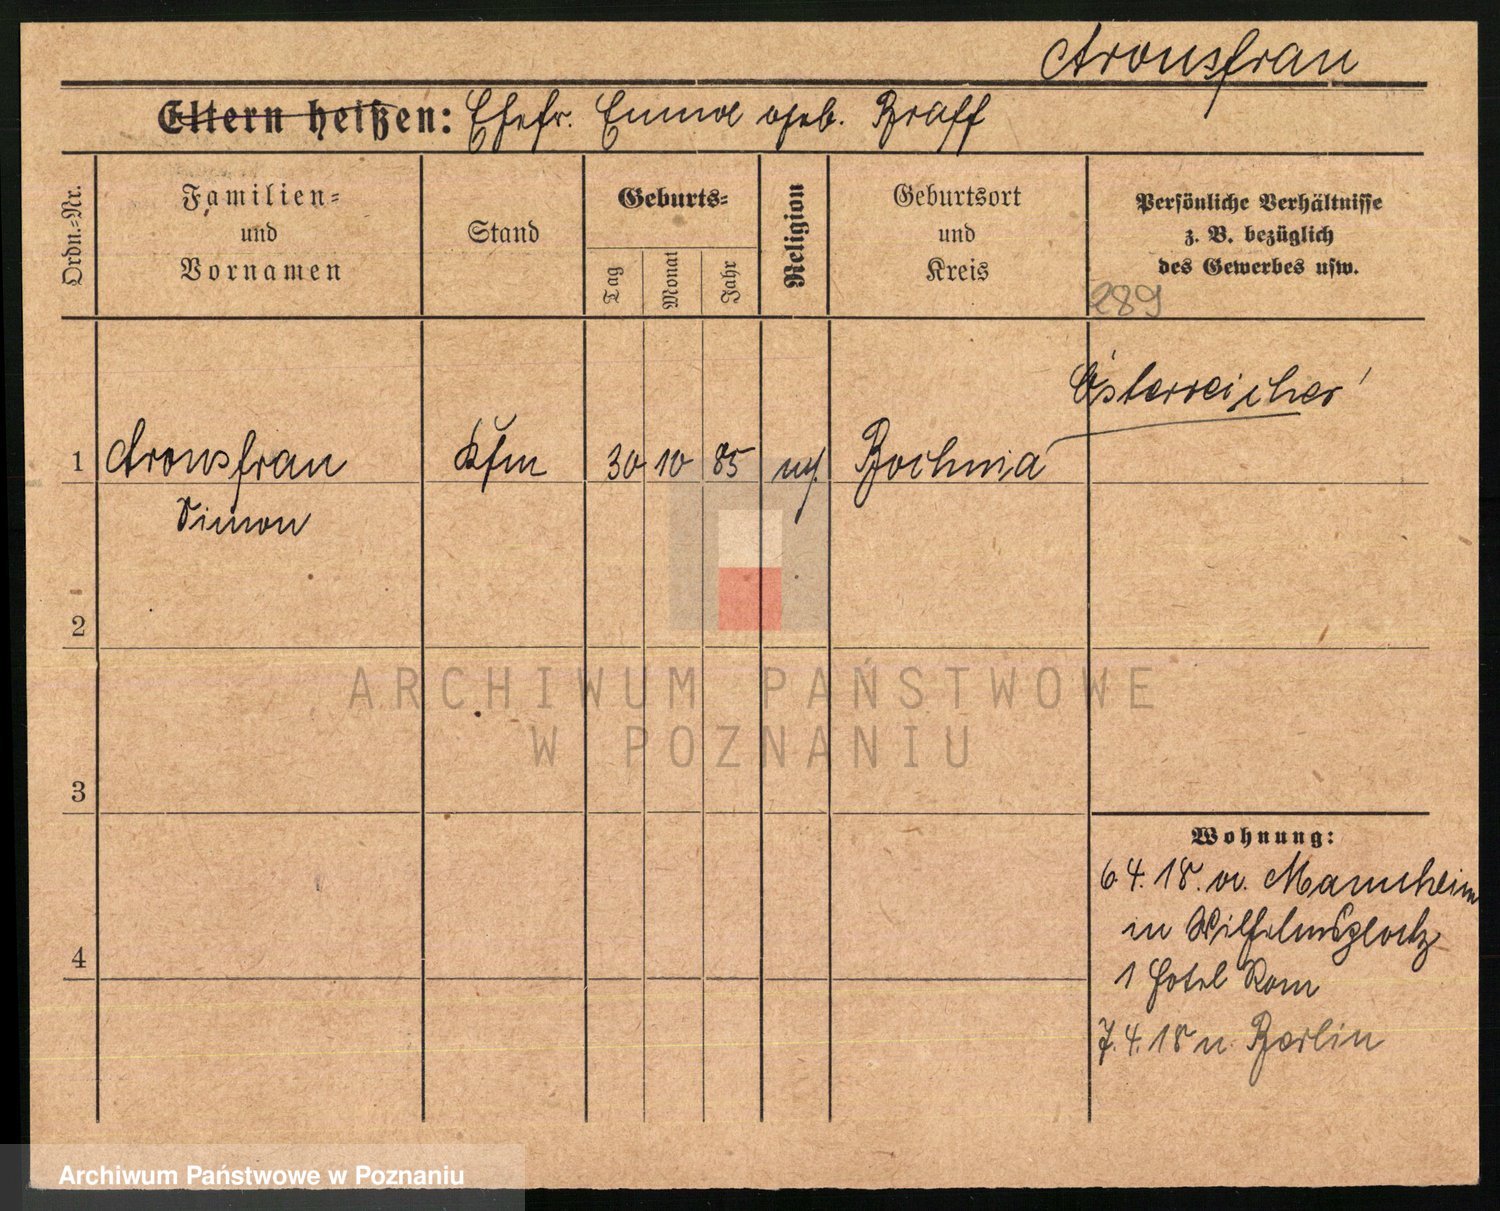 Aronsfrau
Eltern heißen: Ehefr. Emma geb. Graff
Ordn.=Nr.
Familien=
und
Vornamen
Stand
Geburts=
Tag
Monat
Jahr
Religion
Geburtsort
und
Kreis
Persönliche Verhältnisse
z. B. bezüglich
des Gewerbes usw.
289
Österreicher
1 Aronsfrau Kfm 30 10 85 Bochnia
Simon
2
ARCHIWUM PAŃSTWOWE
W POZNANIU
3
Wohnung:
6.4.18. v. Mannheim
in Wilhelmsplatz
4
1 Hotel Rom
7.4.18 n. Berlin
Archiwum Państwowe w Poznaniu